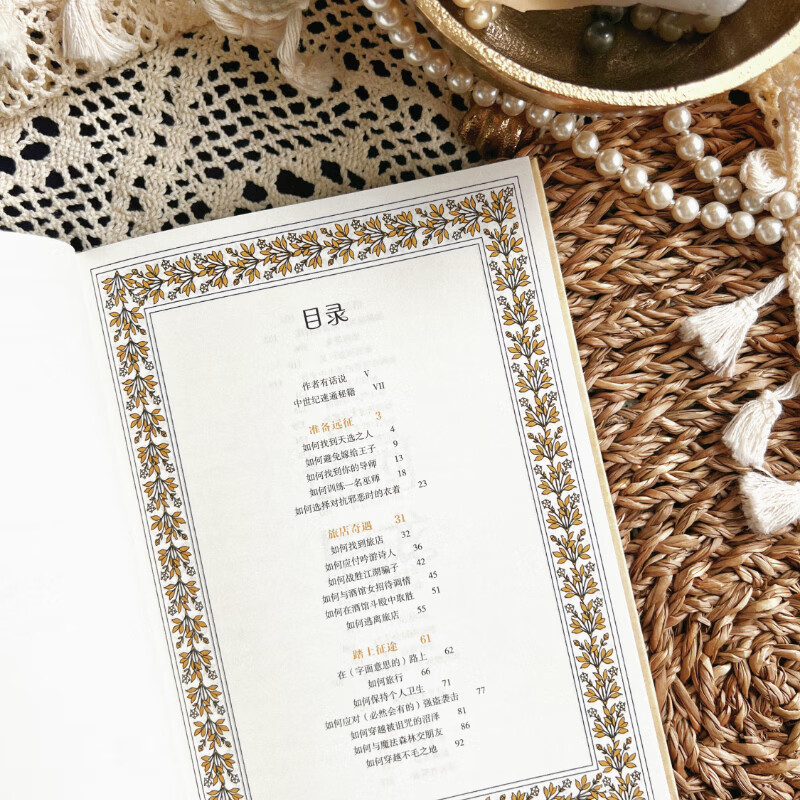 目录
作者有话说 V
中世纪速通秘籍 VII
准备远征 3
如何找到天选之人 4
如何避免嫁给王子 9
如何找到你的导师 13
如何训练一名巫师 18
如何选择对抗邪恶时的衣着 23
旅店奇遇 31
如何找到旅店 32
如何应付吟游诗人 36
如何战胜江湖骗子 42
如何与酒馆女招待调情 45
如何在酒馆斗殴中取胜 51
如何逃离旅店 55
踏上征途 61
在（字面意思的）路上 62
如何旅行 66
如何保持个人卫生 71
如何应对（必然会有的）强盗袭击 77
如何穿越被诅咒的沼泽 81
如何与魔法森林交朋友 86
如何穿越不毛之地 92